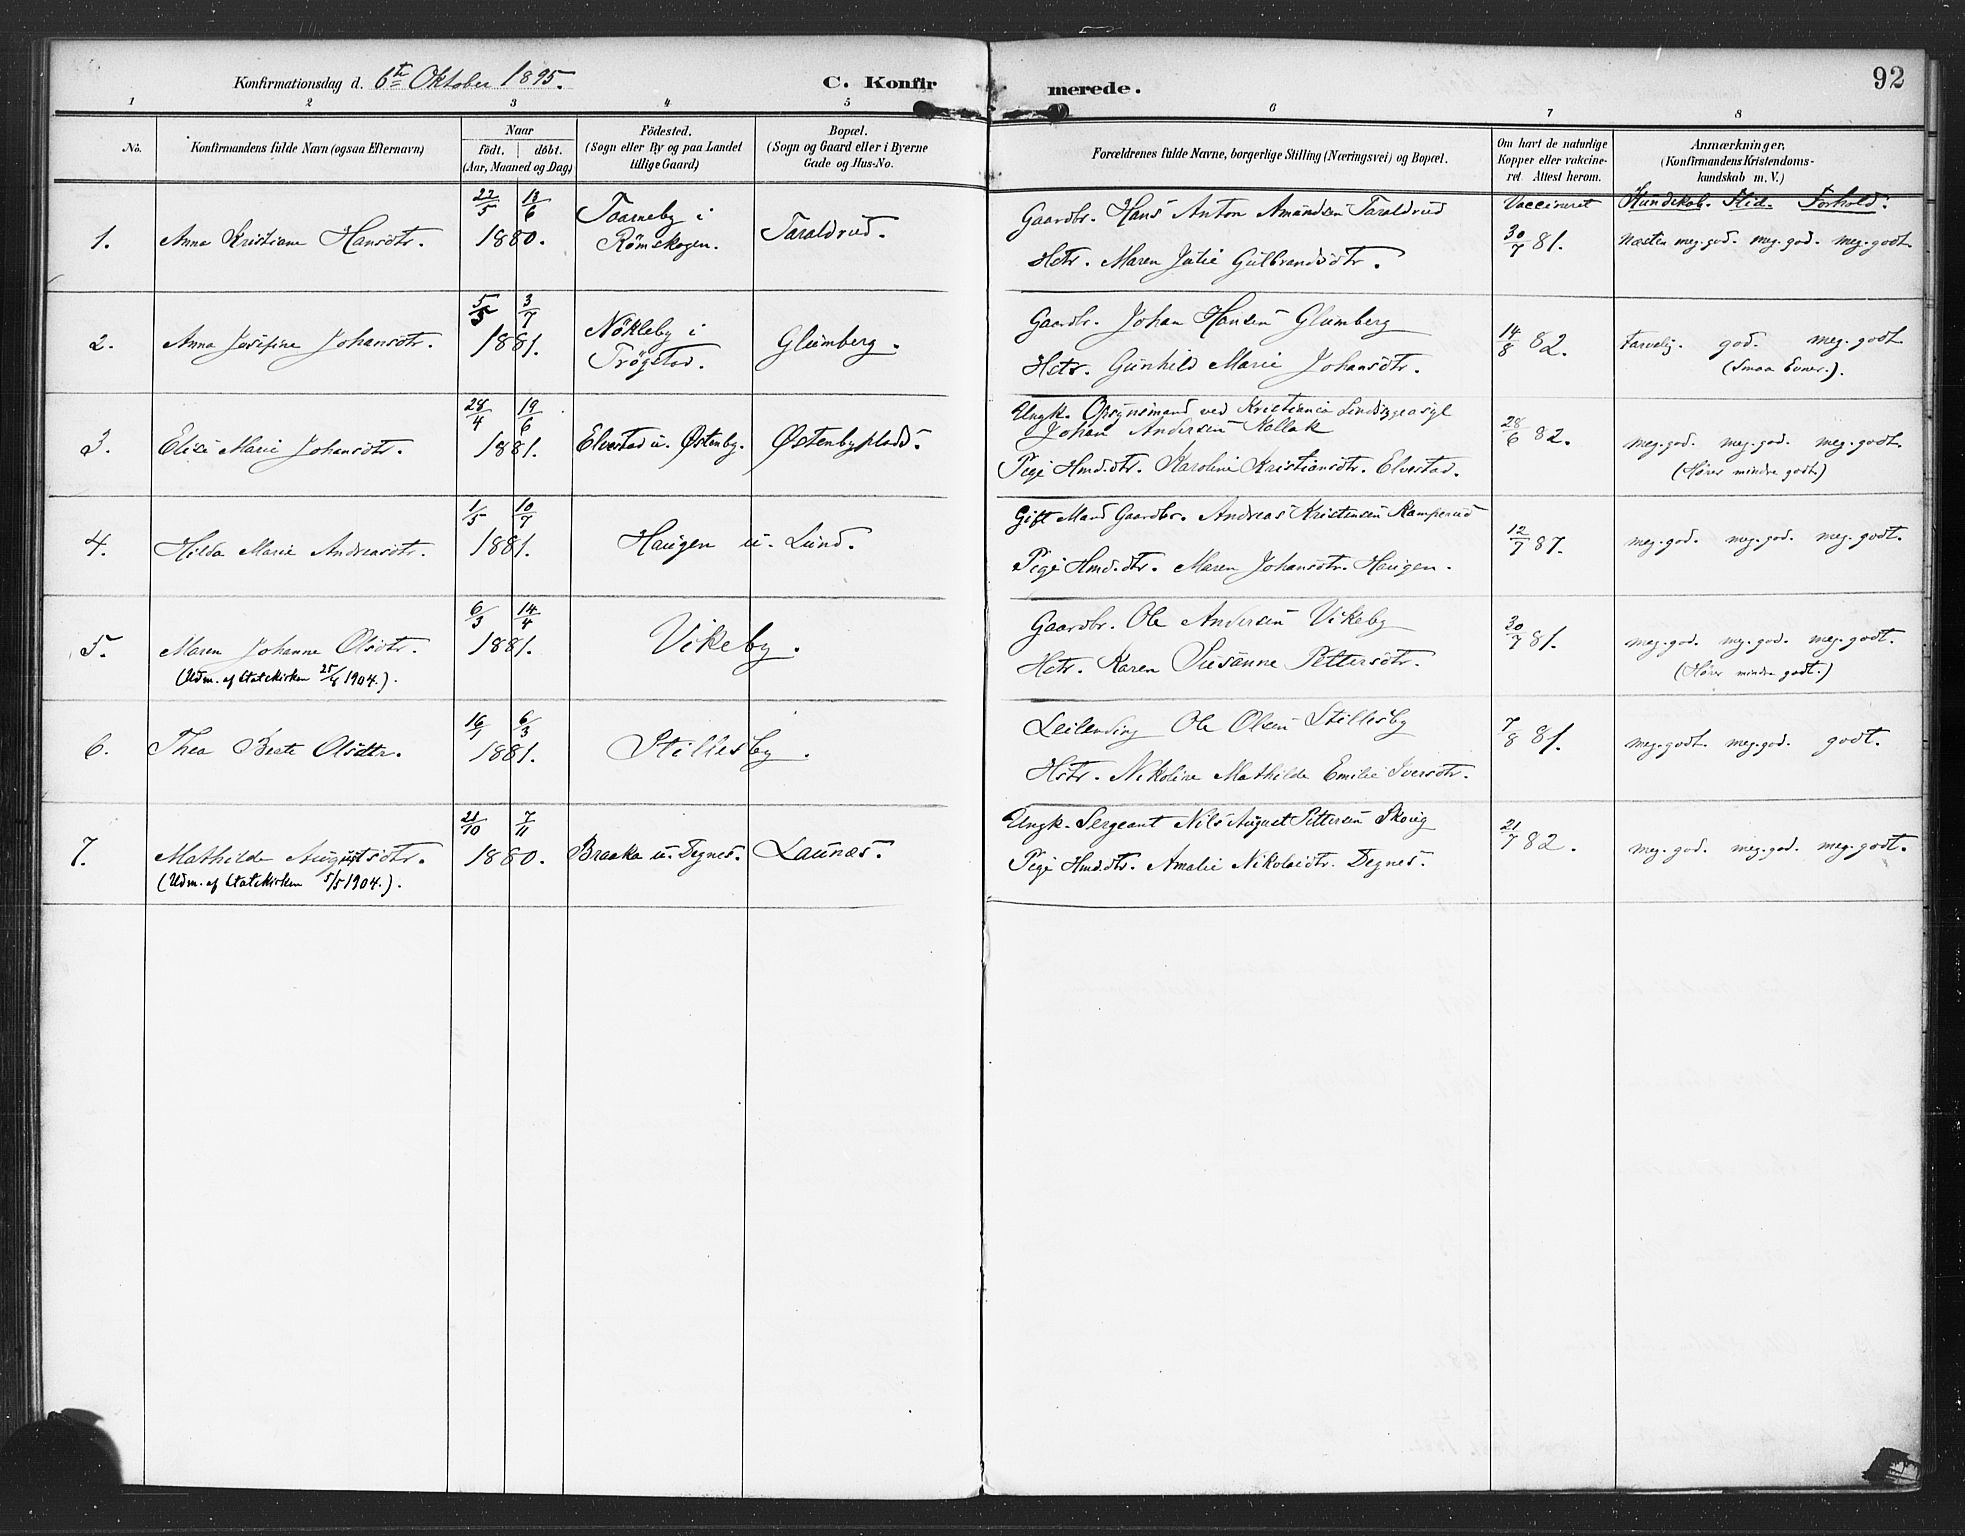 Konfirmationsdag d. 6te Oktober 1895.
C. Konfirmerede.
92
1 2 3 4 5 6 7 8
No.
Konfirmandens fulde Navn (ogsaa Efternavn)
Naar
födt. döbt.
(Aar, Maaned og Dag)
Födested.
(Sogn eller By og paa Landet
tillige Gaard)
Bopæl.
(Sogn og Gaard eller i Byerne
Gade og Hus-No.
Forældrenes fulde Navne, borgerlige Stilling (Næringsvei) og Bopæl.
Om havt de naturlige
Kopper eller vakcine-
ret. Attest herom.
Anmærkninger,
(Konfirmandens Kristendoms-
kundskab m. V.)
Vaccineret
Kundskab. Flid. Forhold.
1. Anna Kristiane Hansdtr.
22/5 13/6
1880.
Taarneby i
Römskogen.
Taraldrud.
Gaardbr. Hans Anton Amundsen Taraldrud
Hstr. Maren Julie Gulbrandsdtr.
30/7 81.
Næsten meg. god. meg. god. meg. godt.
2. Anna Josefine Johansdtr.
5/5 3/7
1881.
Nökleby i
Trögstad.
Glumberg.
Gaardbr. Johan Hansen Glumberg
Hstr. Gunhild Marie Johansdtr.
14/8 82.
Tarvelig. god. meg. godt
(Smaa Evner.).
3. Elise Marie Johansdtr.
28/4 19/6
1881.
Elvestad u. Østenby.
Østenbyplads.
Ungk. Opsynsmand ved Kristiania Sindssygeasyl
Johan Andersen Kallak
Pige Hmd.dtr. Karoline Kristiansdtr. Elvestad.
28/6 82.
meg. god. meg. god. meg. godt.
(Hörer mindre godt)
4. Hilda Marie Andreasdtr.
1/5 10/7
1881.
Haugen u. Lund.
Gift Mand Gaardbr. Andreas Kristensen Kamperud
Pige Hmd.dtr. Maren Johansdtr. Haugen.
12/7 87.
meg. god. meg. god. meg. godt.
5. Maren Johanne Olsdtr.
(Udm. af Statskirken 25/4 1904.).
6/3 14/4
1881.
Vikeby.
Gaardbr. Ole Andersen Vikeby
Hstr. Karen Susanne Pettersdtr.
30/7 81.
meg. god. meg. god. meg. godt.
(Hörer mindre godt.)
6. Thea Beate Olsdtr.
16/1 6/3
1881.
Stillesby.
Leilending Ole Olsen Stillesby
Hstr. Nikoline Mathilde Emilie Iversdtr.
7/8 81.
meg. godt. meg. god. godt.
7. Mathilde Augustsdtr.
(Udm. af Statskirken 5/5 1904.).
21/10 7/11
1880.
Braaka u. Degnes.
Launæs.
Ungk. Sergeant Nils August Pettersen Skovig
Pige Hmd.dtr. Amalie Nikolaidtr. Degnes.
21/7 82.
meg. god. meg. god. meg. godt.